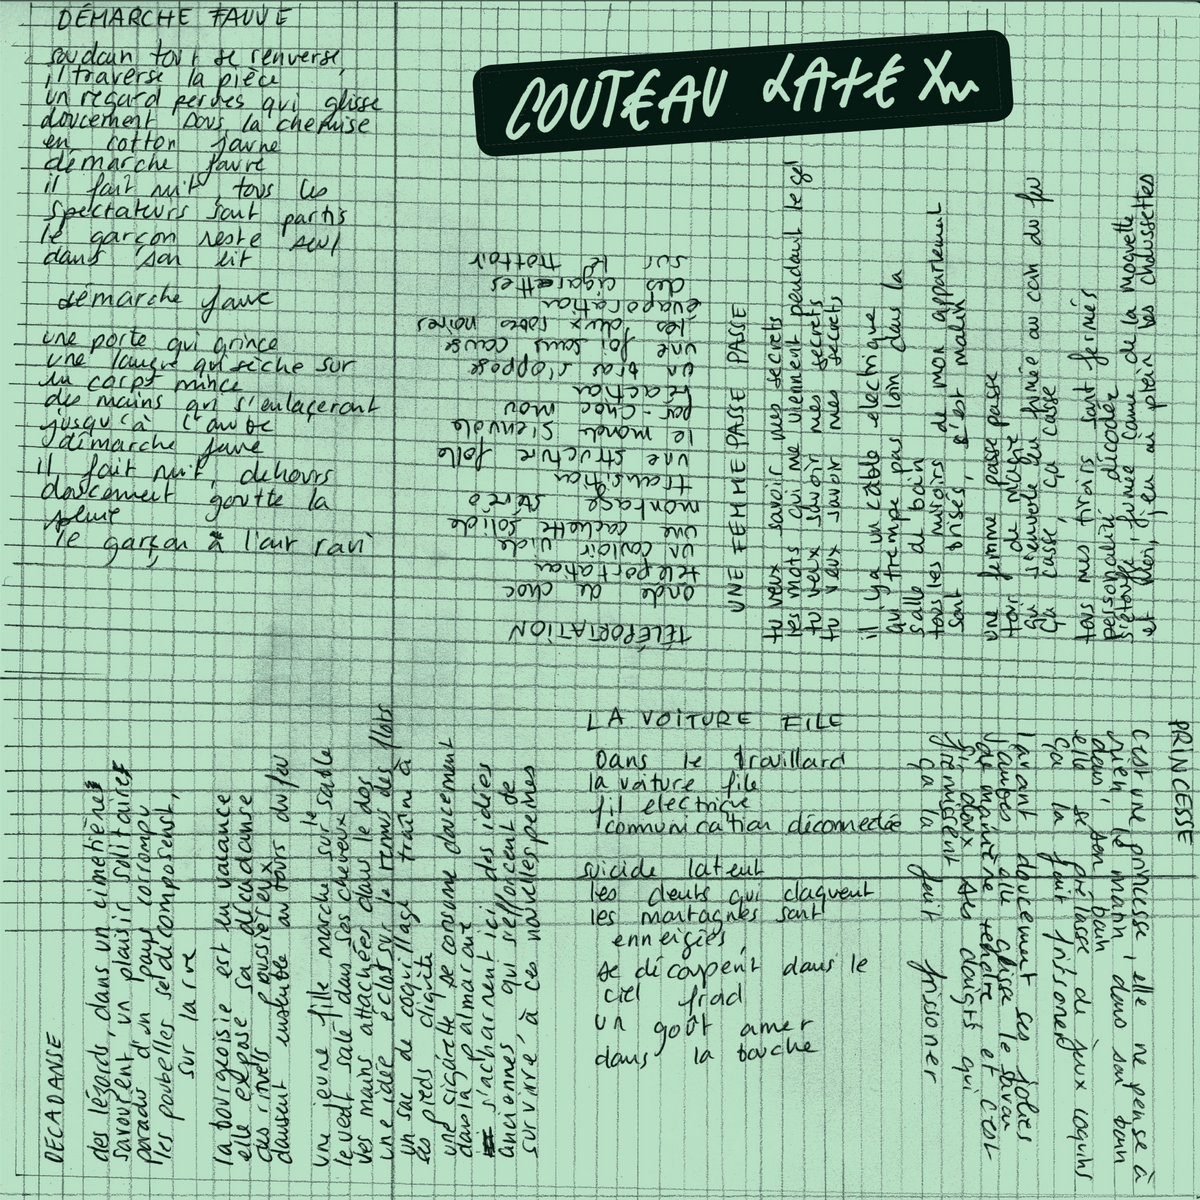 COUTEAU LATEX
DÉMARCHE FAUVE
soudain tout se renverse
il traverse la pièce
un regard pervers qui glisse
doucement sous la chemise
en cotton jaune
démarche fauve
il fait nuit, tous les
spectateurs sont partis
le garçon reste seul
dans son lit
démarche fauve
une porte qui grince
une langue qui sèche sur
un corps mince
des mains qui s'enlaceront
jusqu'à l'aube
démarche fauve
il fait nuit, dehors
doucement goutte la
pluie
le garçon a l'air ravi
TÉLÉPORTATION
onde de choc
téléportation
un couloir vide
une cachette solide
montage stéréo
transition
une structure folle
le monde s'envole
par-choc mou
réaction
un bras s'oppose
une fois sans cause
les deux robes noires
évaporation
des cigarettes
sur le trottoir
UNE FEMME PASSE PASSE
tu veux savoir mes secrets
les mots qui me viennent pendant le gel
tu veux savoir mes secrets
tu veux savoir mes secrets
il y a un cable electrique
qui trempe pas loin dans la
salle de bain
tous les miroirs de mon appartement
sont brisés, c'est malin
une femme passe passe
tour de magie
qui s'envole en fumée au coin du feu
ça casse, ça casse
tous mes tiroirs sont fermés
personnalité décodée
s'étouffe, fumée comme de la moquette
et bien, j'en ai plein les chaussettes
DECADANSE
des lézards, dans un cimetière
savourent un plaisir solitaire
paradis d'un pays corrompu
les poubelles se décomposent,
sur la rue
la bourgeoisie est en valance
elle expose sa décadanse
des rires poussiéreux
dansent ensemble autours du feu
une jeune fille marche sur le sable
le vent salé dans ses cheveux
ses mains attachées dans le dos
une idée éclot sur le remis des flots
un sac de coquillage traîne à
ses pieds cliquite
une cigarette se consume doucement
dans la palmarout
s'acharnent ici des idées
anciennes qui s'efforcent de
survivre, à ces nouvelles peines
LA VOITURE FILE
Dans le brouillard
la voiture file
fil electrique
communication déconnectée
suicide latent
les dents qui claquent
les montagnes sont
enneigées,
se découpent dans le
ciel froid
un goût amer
dans la bouche
PRINCESSE
c'est une princesse, elle ne pense à
rien, le matin, dans son bain
dans son bain
elle se prélasse de jeux coquins
ça la fait frissoner
l'avant doucement ses jolies
jambes elle glisse le savon
de manière tendre et c'est
si doux ses doigts qui
frémissent
ça la fait frissoner